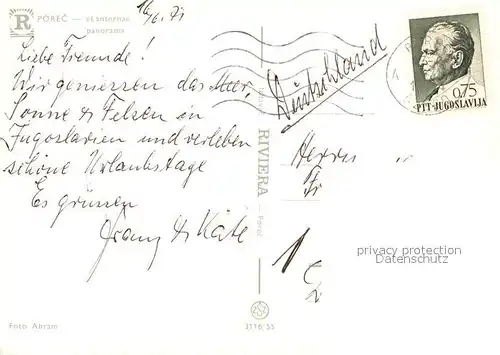 R
POREČ —
panorama
16/6. 71
Liebe Freunde!
Wir geniessen das Meer,
Sonne & Felsen in
Jugoslavien und verleben
schöne Urlaubstage
Es grüssen
Franz & Käte
Deutschland
0.75
PTT-JUGOSLAVIJA
RIVIERA
Poreč
Herrn
Fr
1
privacy protection
Datenschutz
Foto Abram
3116/55